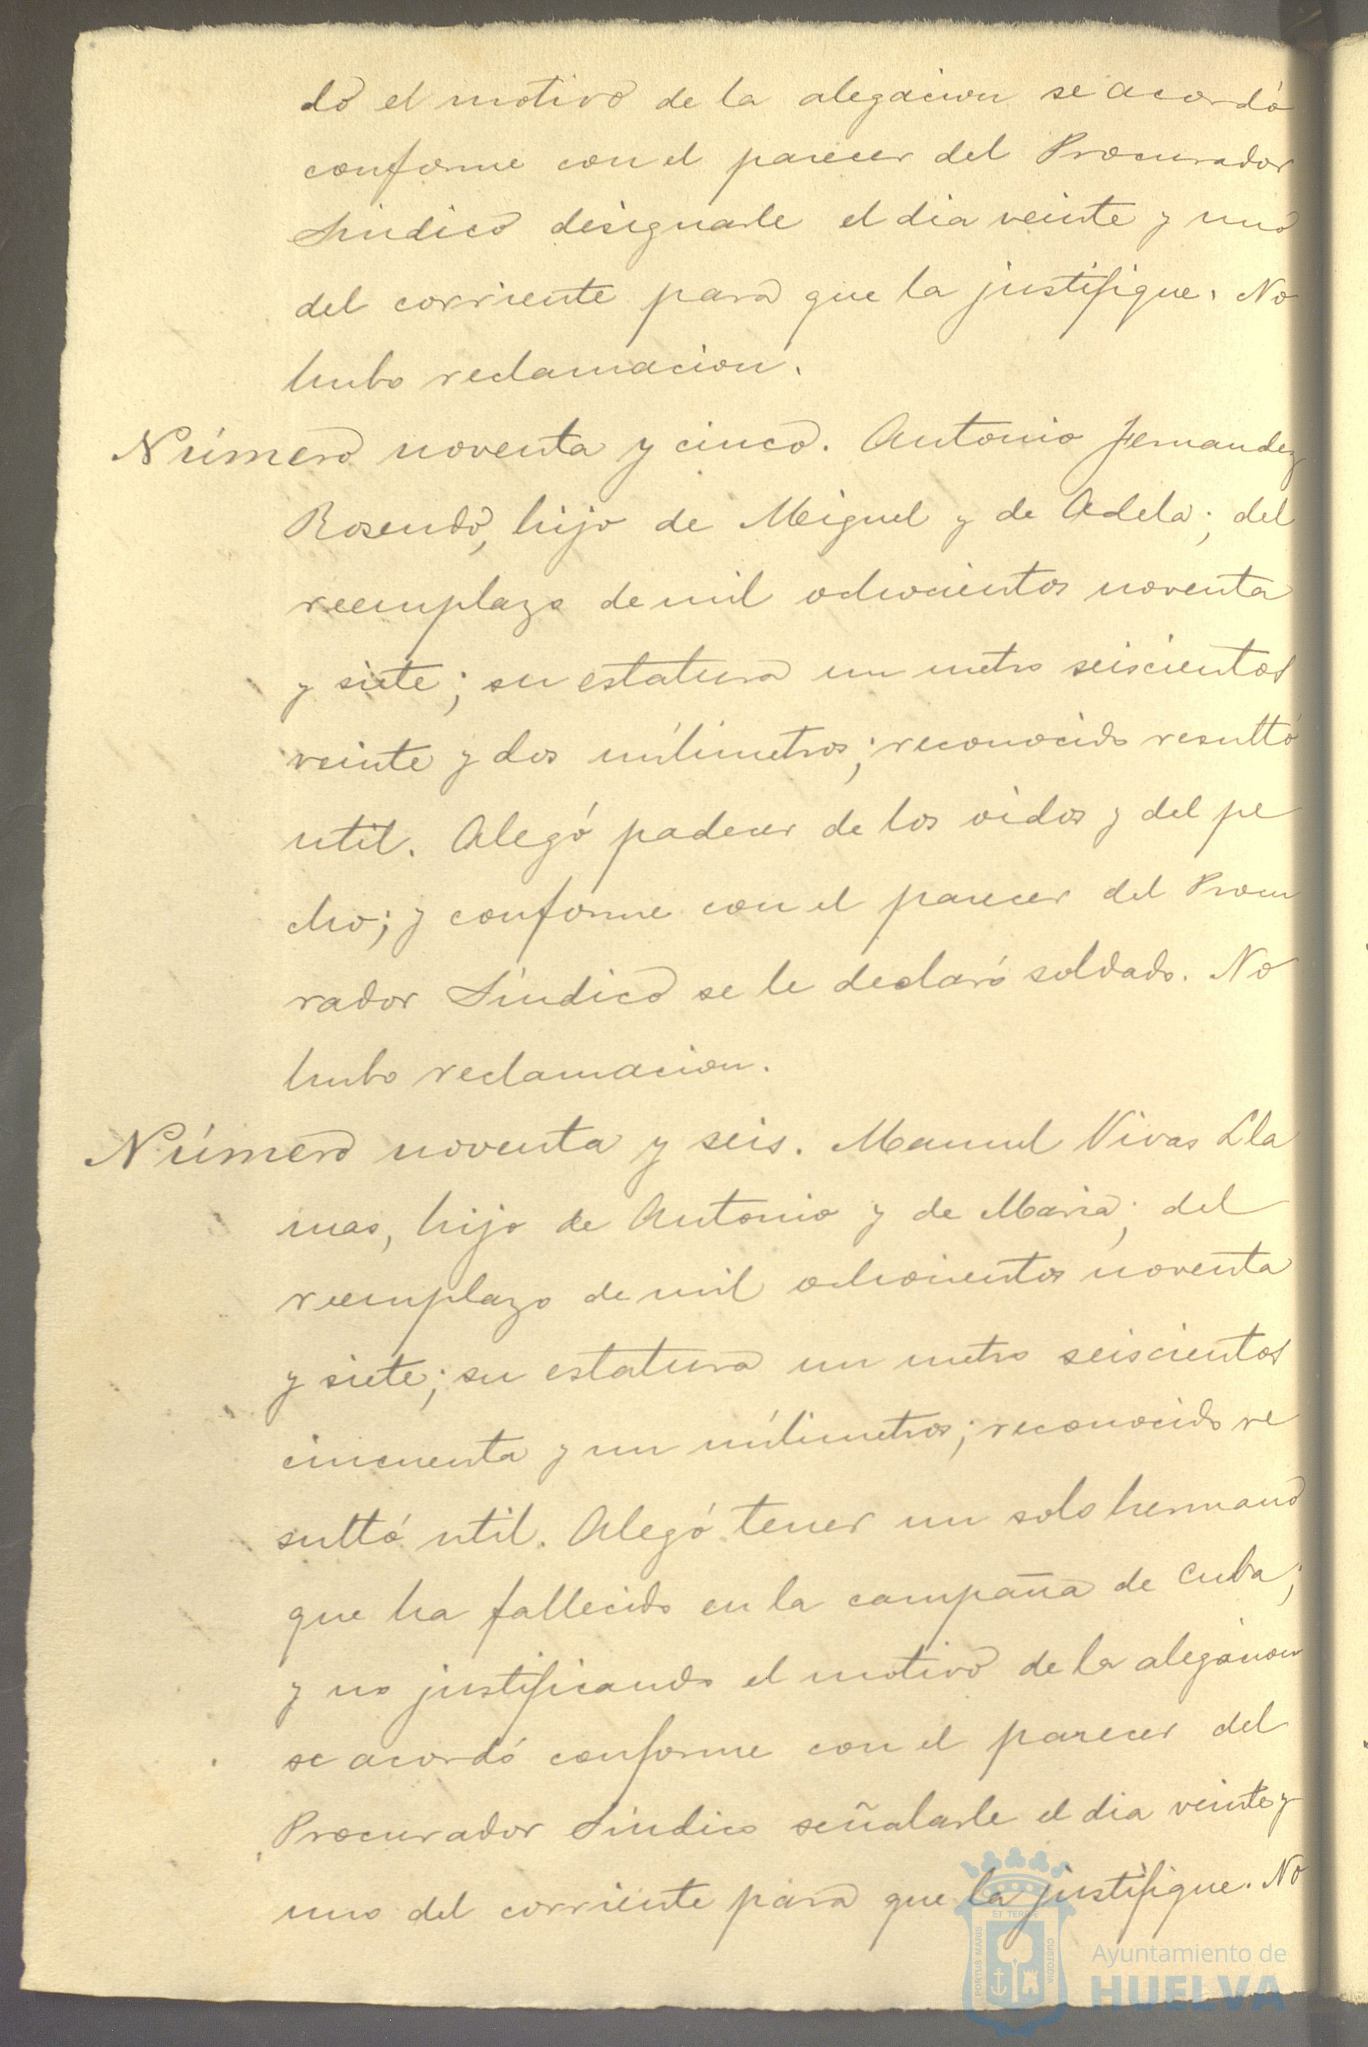 do el motivo de la alegacion se acordó
conforme con el parecer del Procurador
Sindico designarle el dia veinte y uno
del corriente para que la justifique. No
hubo reclamacion.
Número noventa y cinco. Antonio Fernandez
Rosendo, hijo de Miguel y de Adela; del
reemplazo de mil ochocientos noventa
y siete; su estatura un metro seiscientos
veinte y dos milimetros; reconocido resultó
util. Alegó padecer de los oidos y del pe
cho; y conforme con el parecer del Procu
rador Síndico se le declaró soldado. No
hubo reclamacion.
Número noventa y seis. Manuel Vivas Lla
mas, hijo de Antonio y de Maria; del
reemplazo de mil ochocientos noventa
y siete; su estatura un metro seiscientos
cincuenta y un milimetros; reconocido re
sultó util. Alegó tener un solo hermano
que ha fallecido en la campaña de Cuba;
y no justificando el motivo de la alegacion
se acordó conforme con el parecer del
Procurador Síndico señalarle el dia veinte y
uno del corriente para que la justifique. No
PORTUS MARIS ET TERRAE CUSTODIA
Ayuntamiento de
HUELVA